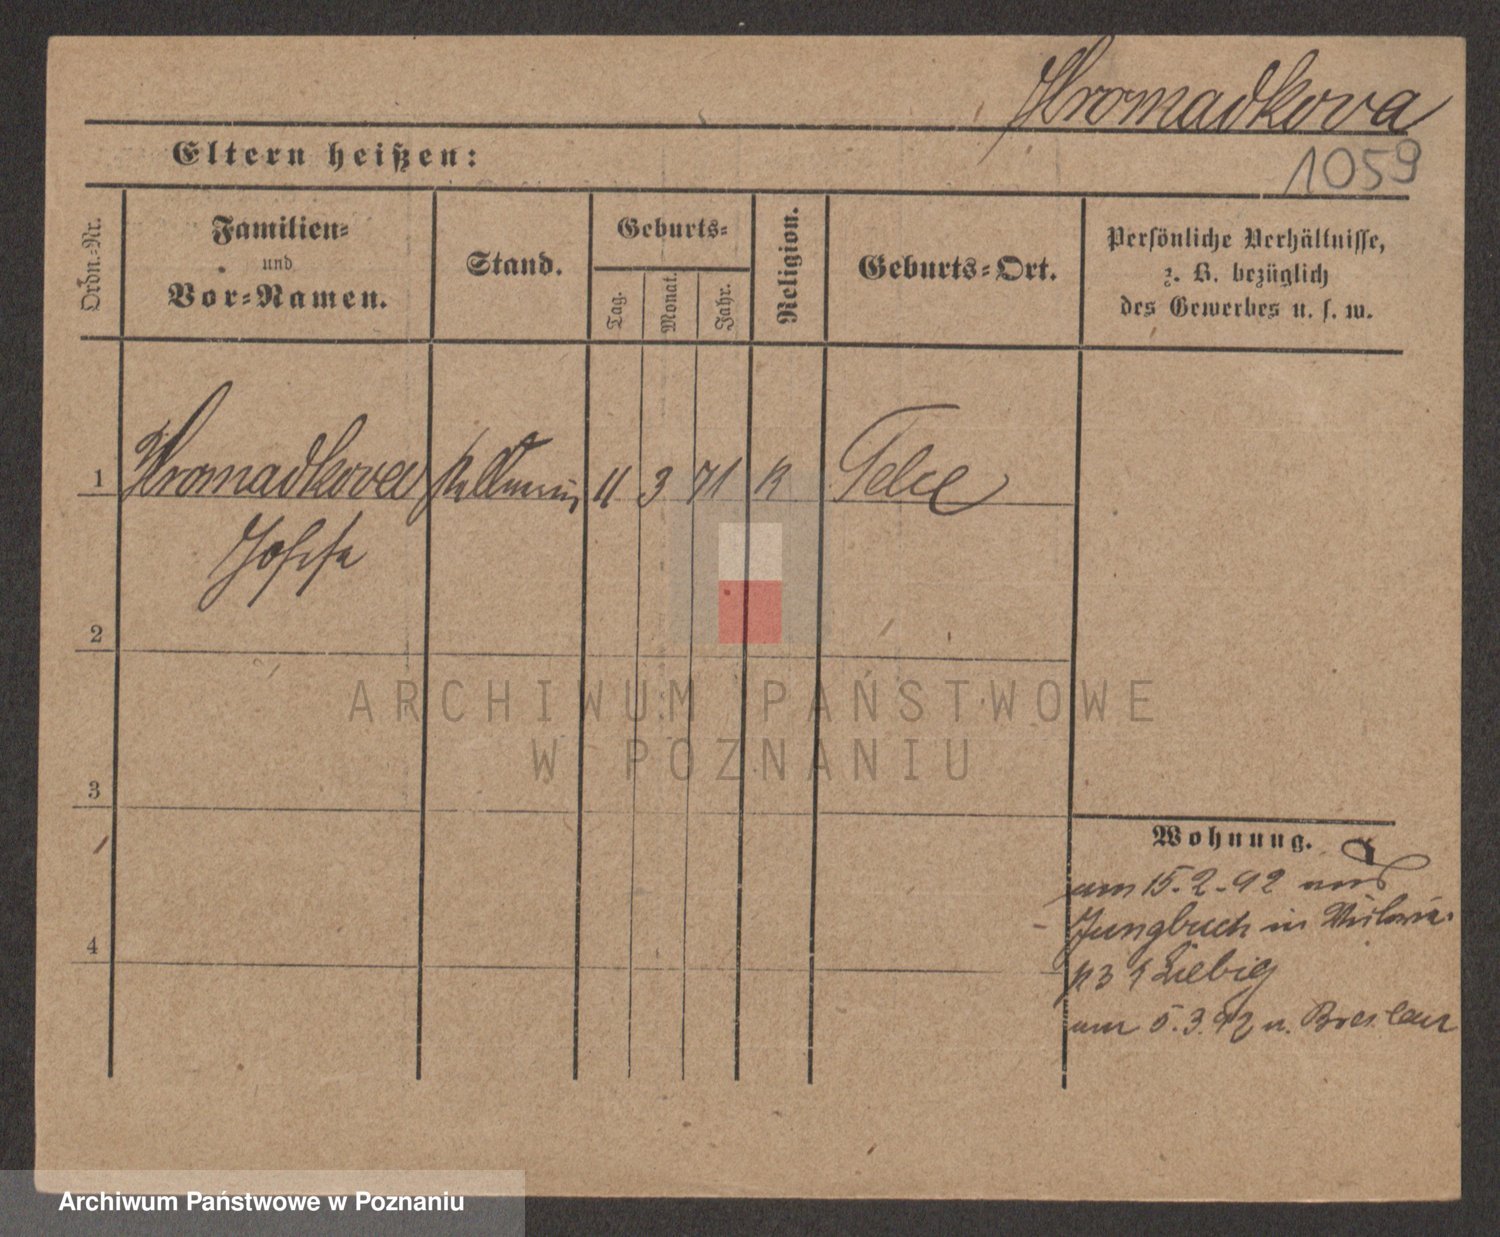 Hromadkova
Eltern heißen:
1059
Ordn.-Nr.
Familien-
und
Vor-Namen.
Stand.
Geburts-
Tag.
Monat.
Jahr.
Religion.
Geburts-Ort.
Persönliche Verhältnisse,
z. B. bezüglich
des Gewerbes u. s. w.
1 Hromadkova Kellnerin 11 3 71 K Telce
Josefa
2
ARCHIWUM PAŃSTWOWE
W POZNANIU
3
Wohnung.
am 15.2.92 aus
Jungbuch in
Liebig
am 5.3.92 n. Breslau
4
Archiwum Państwowe w Poznaniu